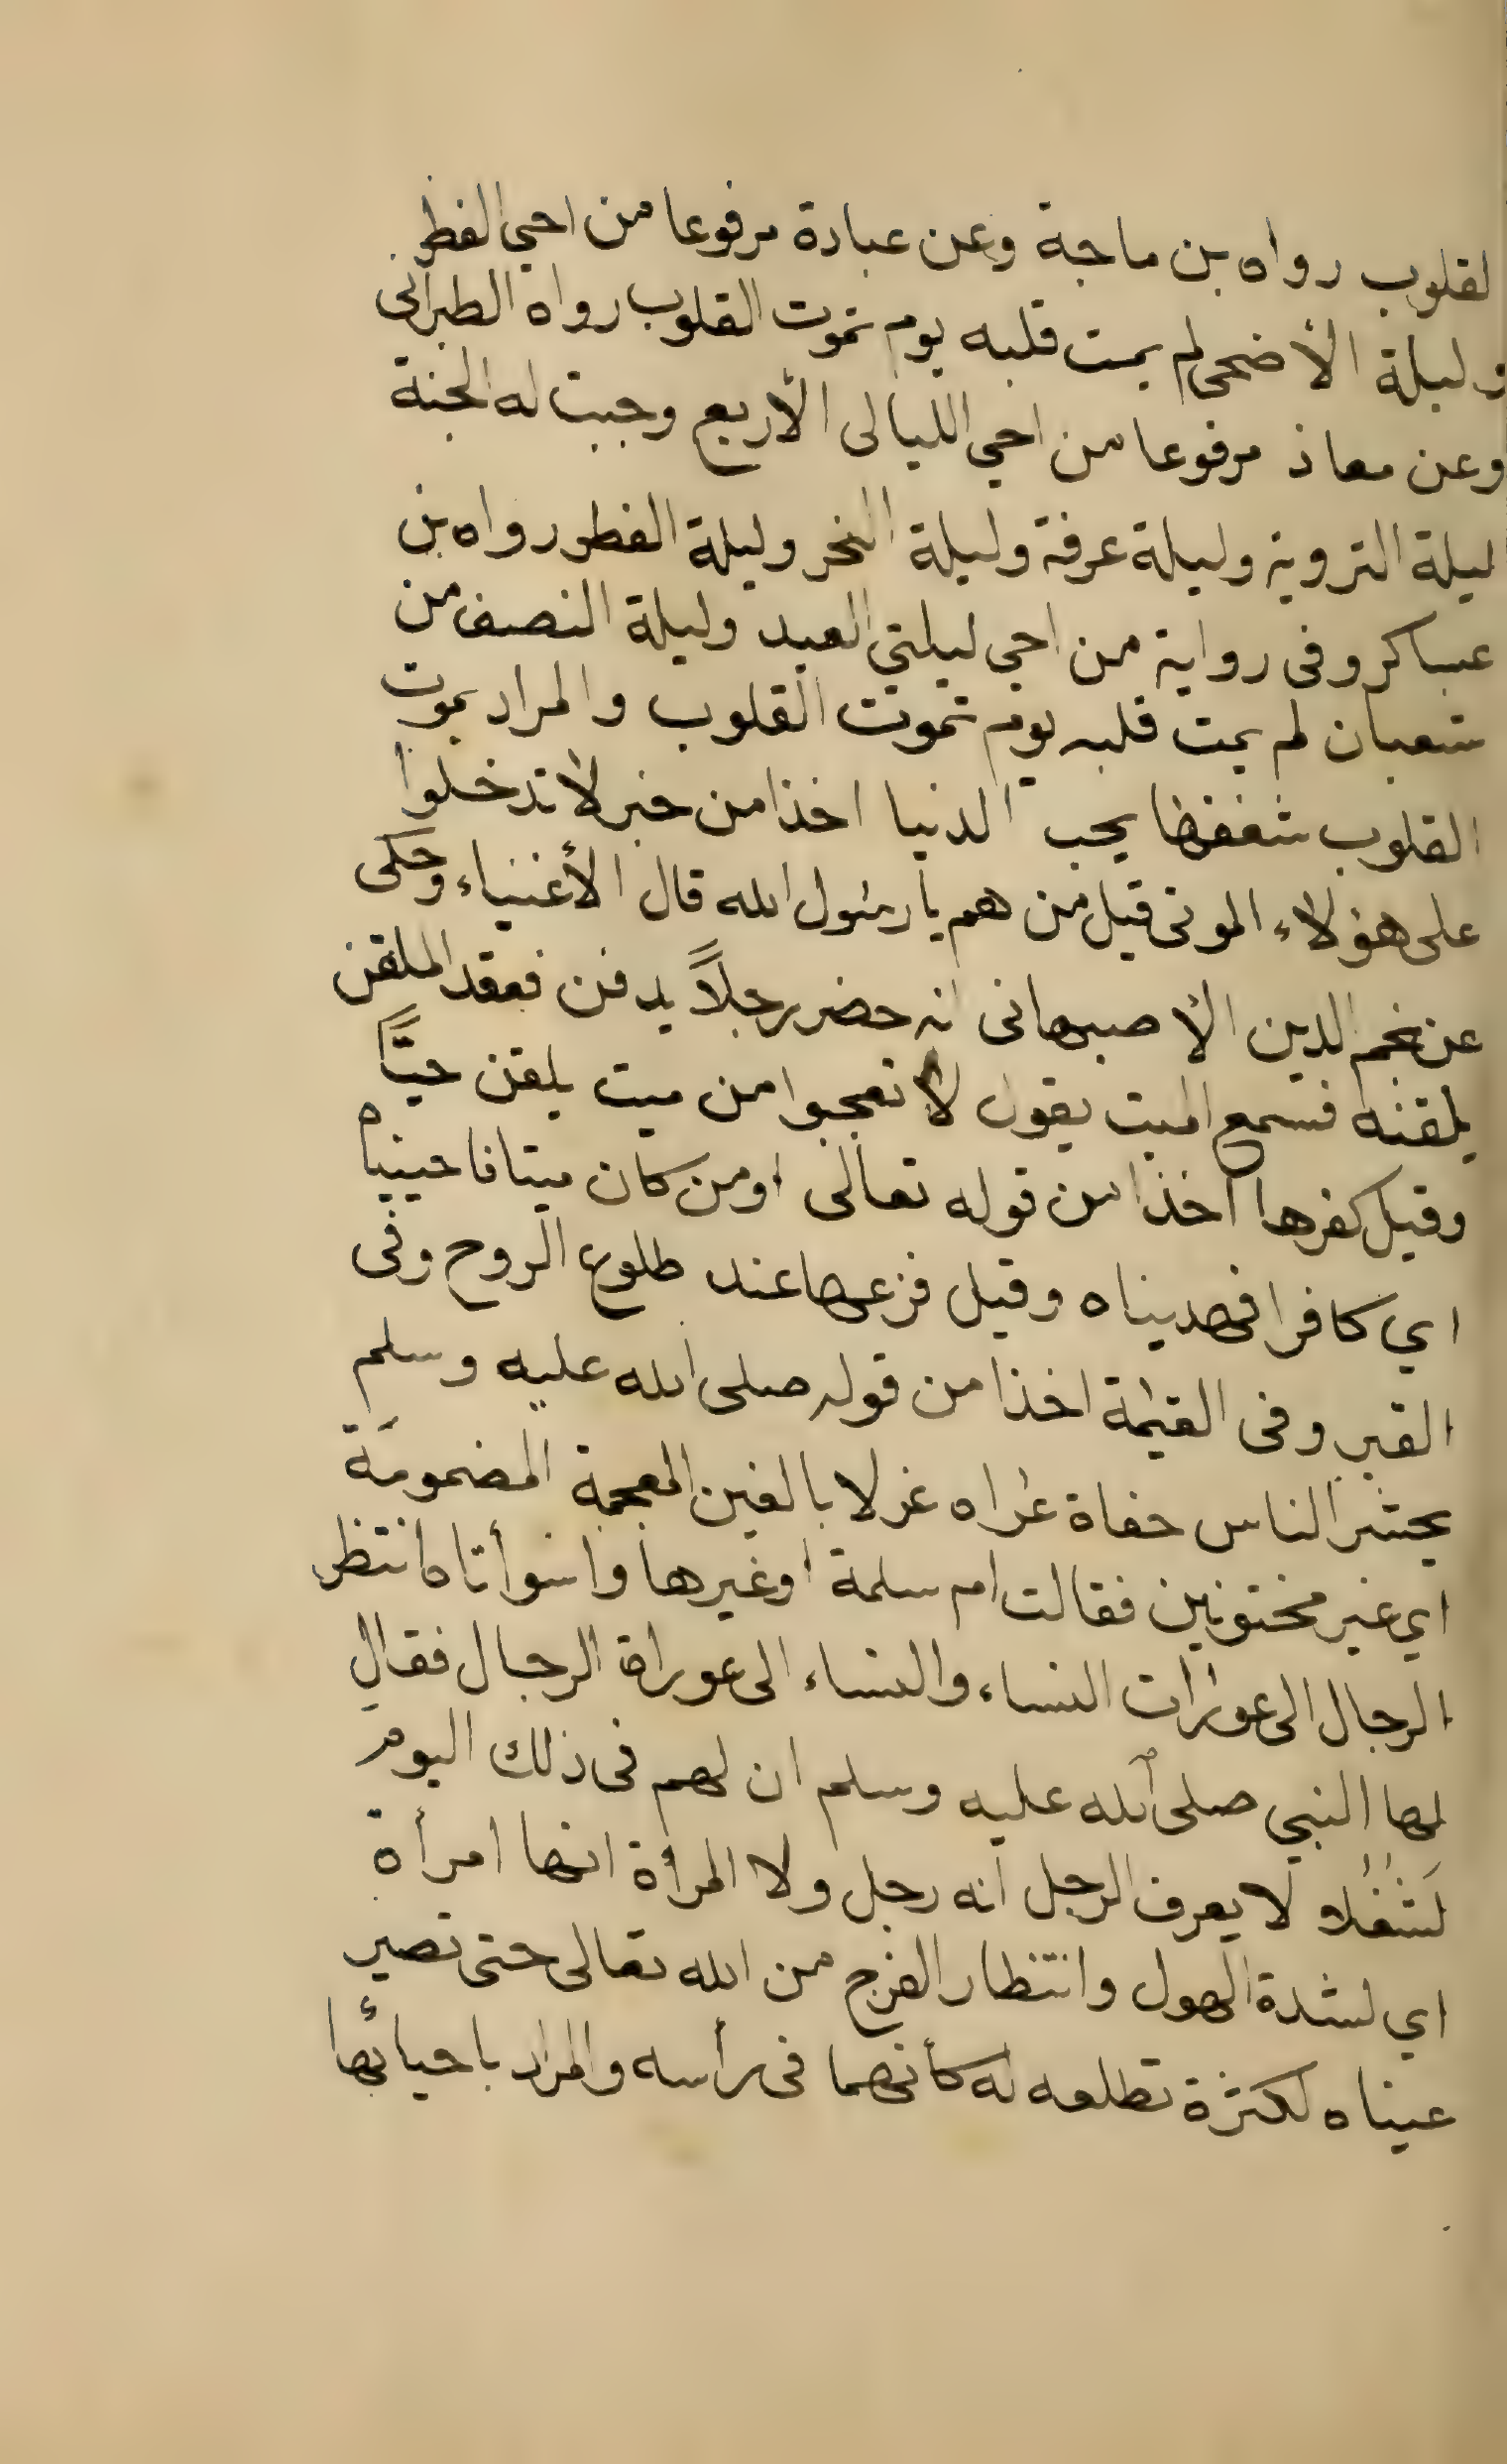 لقلوب رواه بن ماجة وعن عبادة مرفوعا من احي الفطر
وليلة الأضحى لم يمت قلبه يوم تموت القلوب رواه الطبرانى
وعن معاذ مرفوعا من احي الليالى الأربع وجبت له الجنة
ليلة التروية وليلة عرفة وليلة النحر وليلة الفطر رواه بن
عساكر وفى رواية من احي ليلتي العيد وليلة النصف من
شعبان لم يمت قلبه يوم تموت القلوب والمراد بموت
القلوب شغفها بحب الدنيا اخذا من خبر لأتدخلوا
على هؤلأء الموتى قيل من هم يا رسول الله قال الأغنياء وحكى
عن نجم الدين الأصبهانى انه حضر رجلاً يدفن فعقد الملقن
يلقنه فسمع الميت يقول لأ تعجبوا من ميت يلقن حيًّا
وقيل كفرها اخذا من قوله تعالى اومن كان ميتا فاحييناه
اي كافرا فهديناه وقيل فزعها عند طلوع الروح وفى
القبر وفى القيمة اخذا من قوله صلى الله عليه وسلم
يحشر الناس حفاة عراه غرلا بالغين المعجمة المضمومة
اي غير مختونين فقالت ام سلمة اوغيرها واسوأتاه انتظر
الرجال الى عورات النساء والنساء الى عوراة الرجال فقال
لها النبي صلى الله عليه وسلم ان لهم فى ذلك اليوم
لشغلا لا يعرف الرجل انه رجل ولا المرأة انها امرأة
اي لشدة الهول وانتظار الفرج من الله تعالى حتى تصير
عيناه لكثرة تطلعه له كأنهما فى رأسه والمراد باحيائها